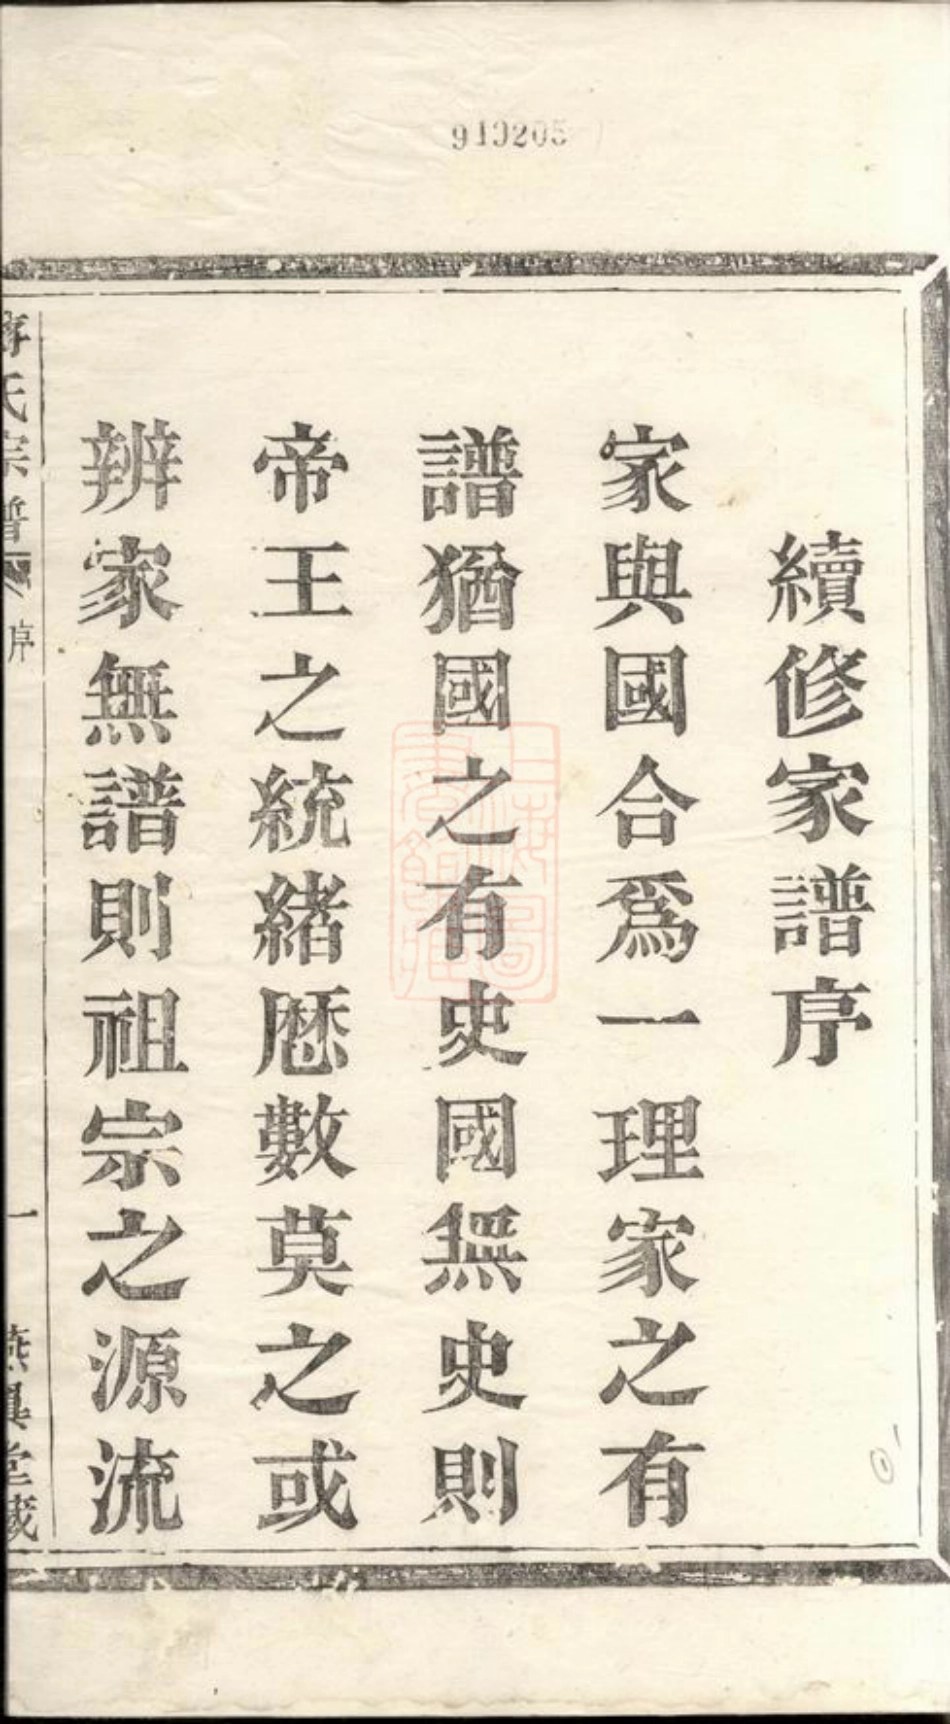 913205
續修家譜序
家與國合爲一理家之有
譜猶國之有史國無史則
帝王之統緒歷數莫之或
辨家無譜則祖宗之源流
氏宗譜 序 一 堂藏